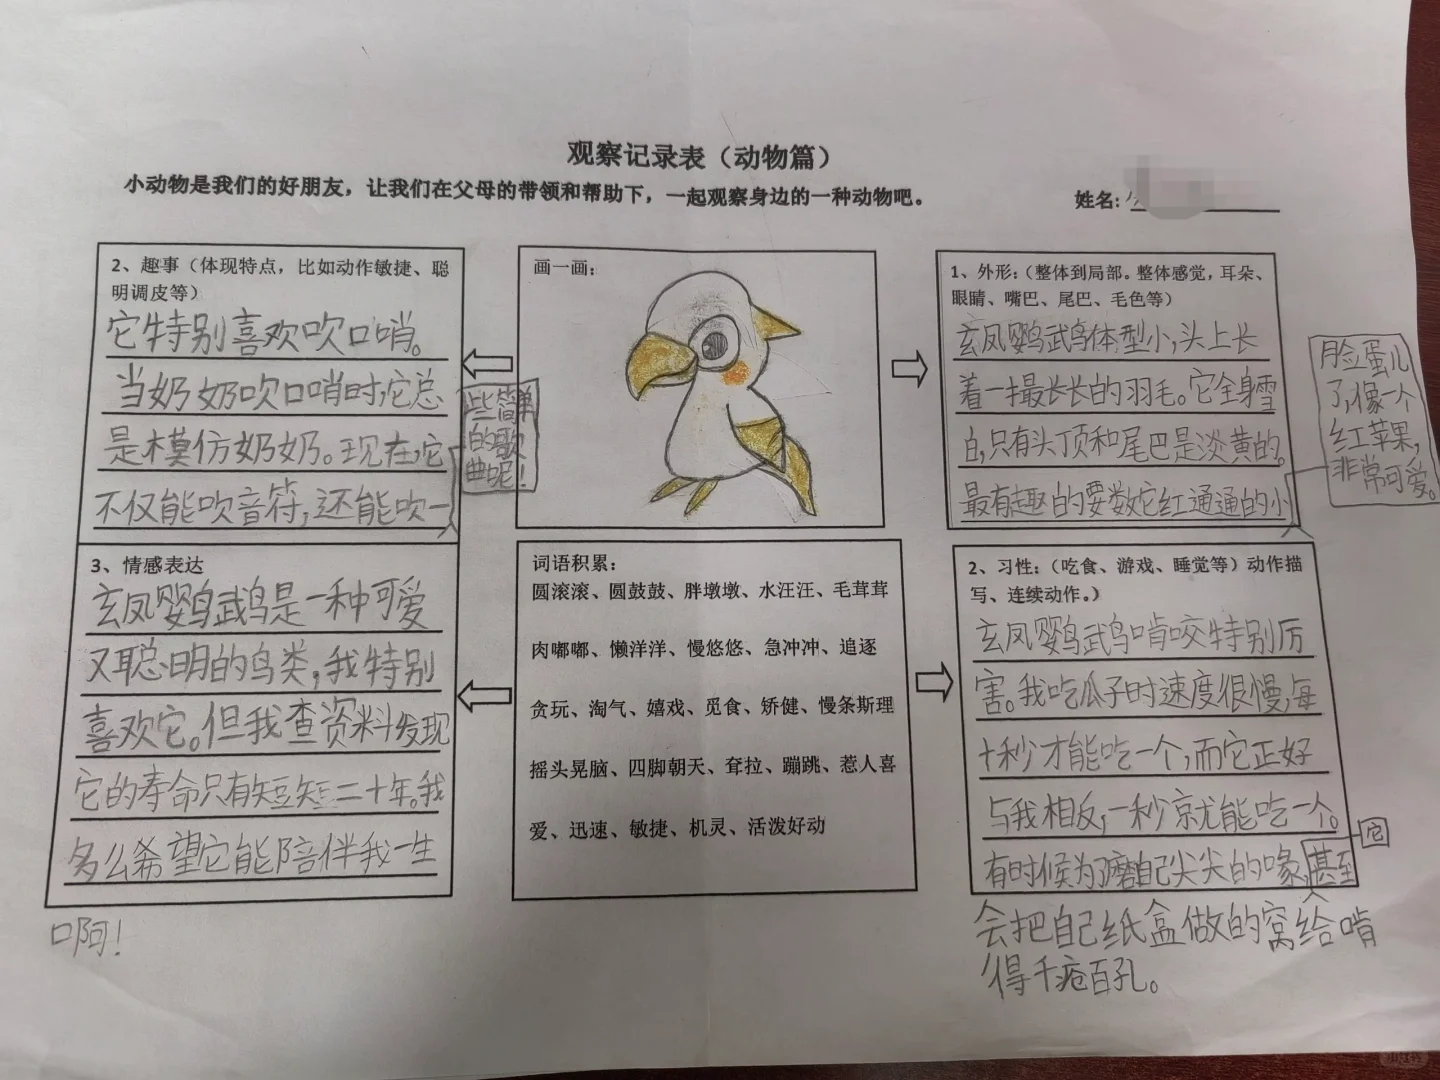 观察记录表（动物篇）
小动物是我们的好朋友，让我们在父母的带领和帮助下，一起观察身边的一种动物吧。
姓名:
2、趣事（体现特点，比如动作敏捷、聪
明调皮等）
它特别喜欢吹口哨。
当奶奶吹口哨时,它总
是模仿奶奶。现在,它
不仅能吹音符,还能吹一
些简单
的歌
曲呢!
画一画：
1、外形：（整体到局部。整体感觉，耳朵、
眼睛、嘴巴、尾巴、毛色等）
玄凤鹦鹉体型小,头上长
着一撮长长的羽毛。它全身雪
白,只有头顶和尾巴是淡黄的。
最有趣的要数它红通通的小
脸蛋儿
了,像一个
红苹果,
非常可爱。
3、情感表达
玄凤鹦鹉是一种可爱
又聪明的鸟类,我特别
喜欢它。但我查资料发现
它的寿命只有短短二十年。我
多么希望它能陪伴我一生
啊!
词语积累：
圆滚滚、圆鼓鼓、胖墩墩、水汪汪、毛茸茸
肉嘟嘟、懒洋洋、慢悠悠、急冲冲、追逐
贪玩、淘气、嬉戏、觅食、矫健、慢条斯理
摇头晃脑、四脚朝天、耷拉、蹦跳、惹人喜
爱、迅速、敏捷、机灵、活泼好动
2、习性：（吃食、游戏、睡觉等）动作描
写、连续动作。）
玄凤鹦鹉啃咬特别厉
害。我吃瓜子时速度很慢,每
十秒才能吃一个,而它正好
与我相反,一秒就能吃一个。
有时候为了磨自己尖尖的喙,甚至
它
会把自己纸盒做的窝给啃
得千疮百孔。